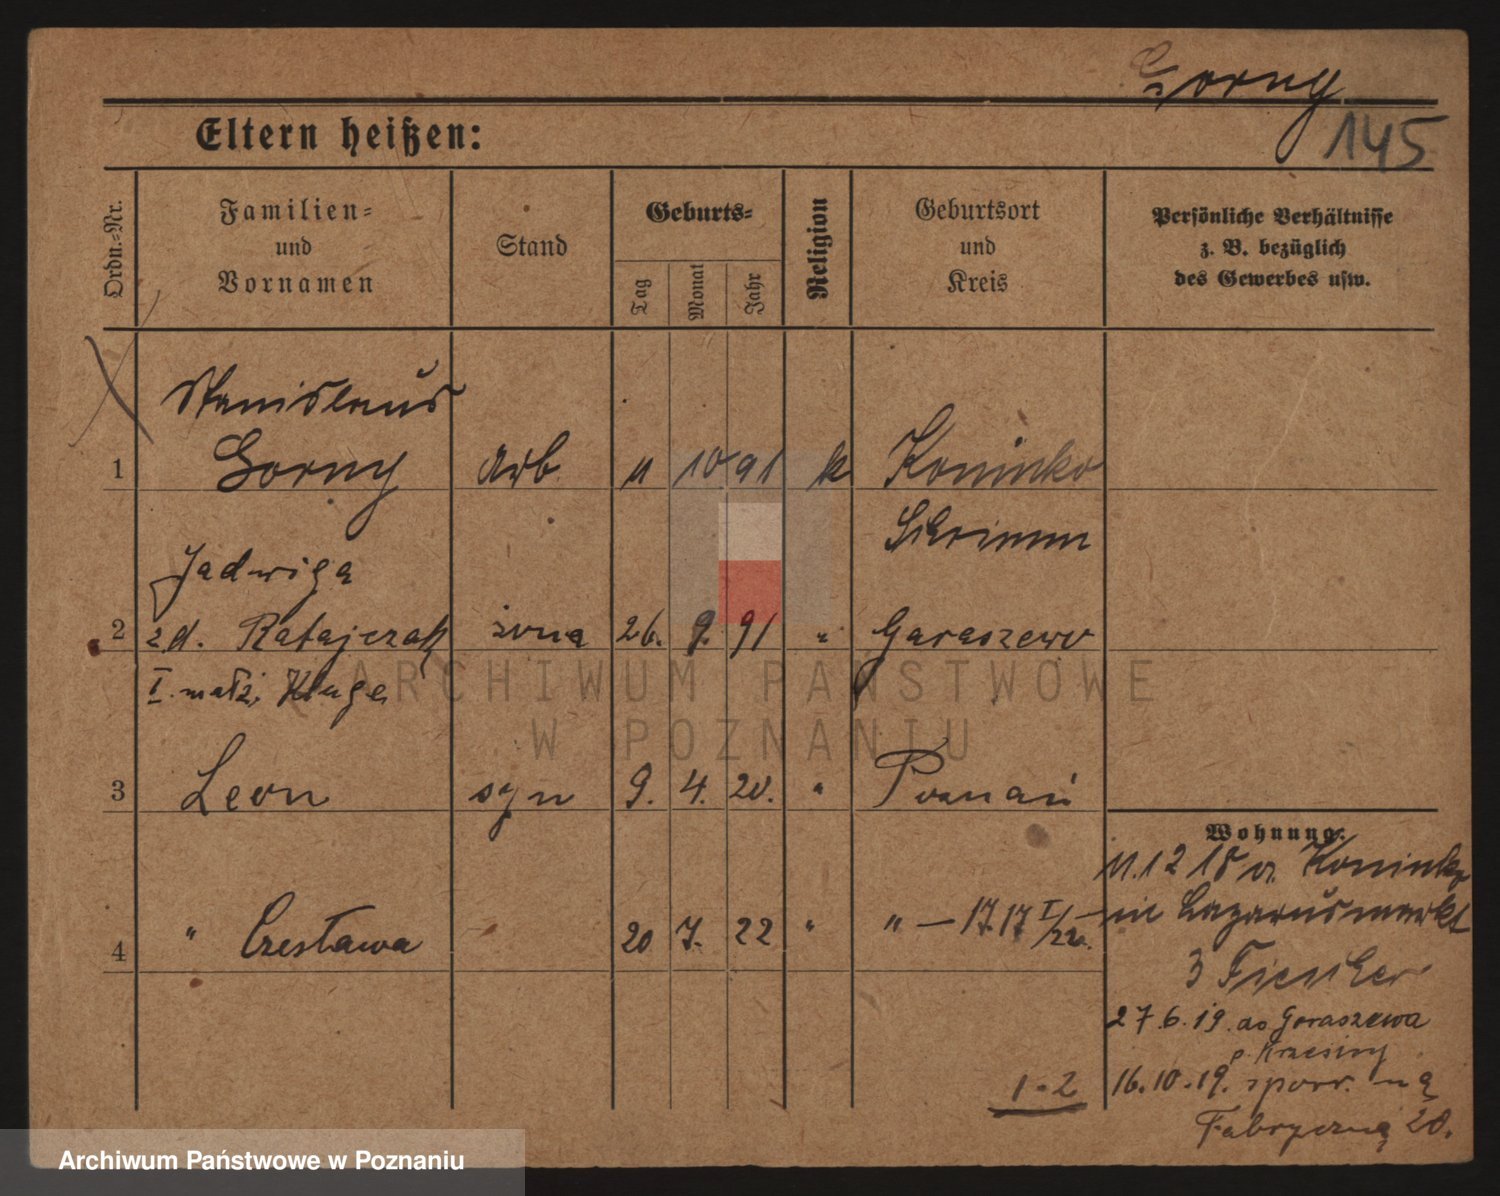 Gorny
145
Eltern heißen:
Ordn.-Nr.
Familien-
und
Vornamen
Stand
Geburts-
Tag
Monat
Jahr
Religion
Geburtsort
und
Kreis
Persönliche Verhältnisse
z. B. bezüglich
des Gewerbes usw.
Stanislaus
1 Gorny Arb. 11 10 91 k Koninko
Schrimm
Jadwiga
2 z d. Ratajczak żona 26. 9. 91 " Garaszewo
I. małż. Kluge
3 Leon syn 9. 4. 20. " Poznań
4 " Czesława 20 7. 22 " " — 17.17 I/22.
Wohnung:
11.12 18 v. Koninko
in Lazarusmarkt
3
27.6.19. do Garaszewa
p. Krzesiny
1-2
16.10.19. spowr. na
Fabryczną 28.
ARCHIWUM PAŃSTWOWE
W POZNANIU
Archiwum Państwowe w Poznaniu